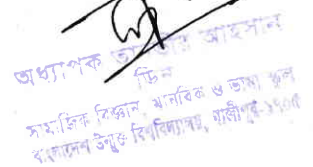 অধ্যাপক আহসান
ডিন
সামাজিক বিজ্ঞান, মানবিক ও ভাষা স্কুল
বাংলাদেশ উন্মুক্ত বিশ্ববিদ্যালয়, গাজীপুর-১৭০৫